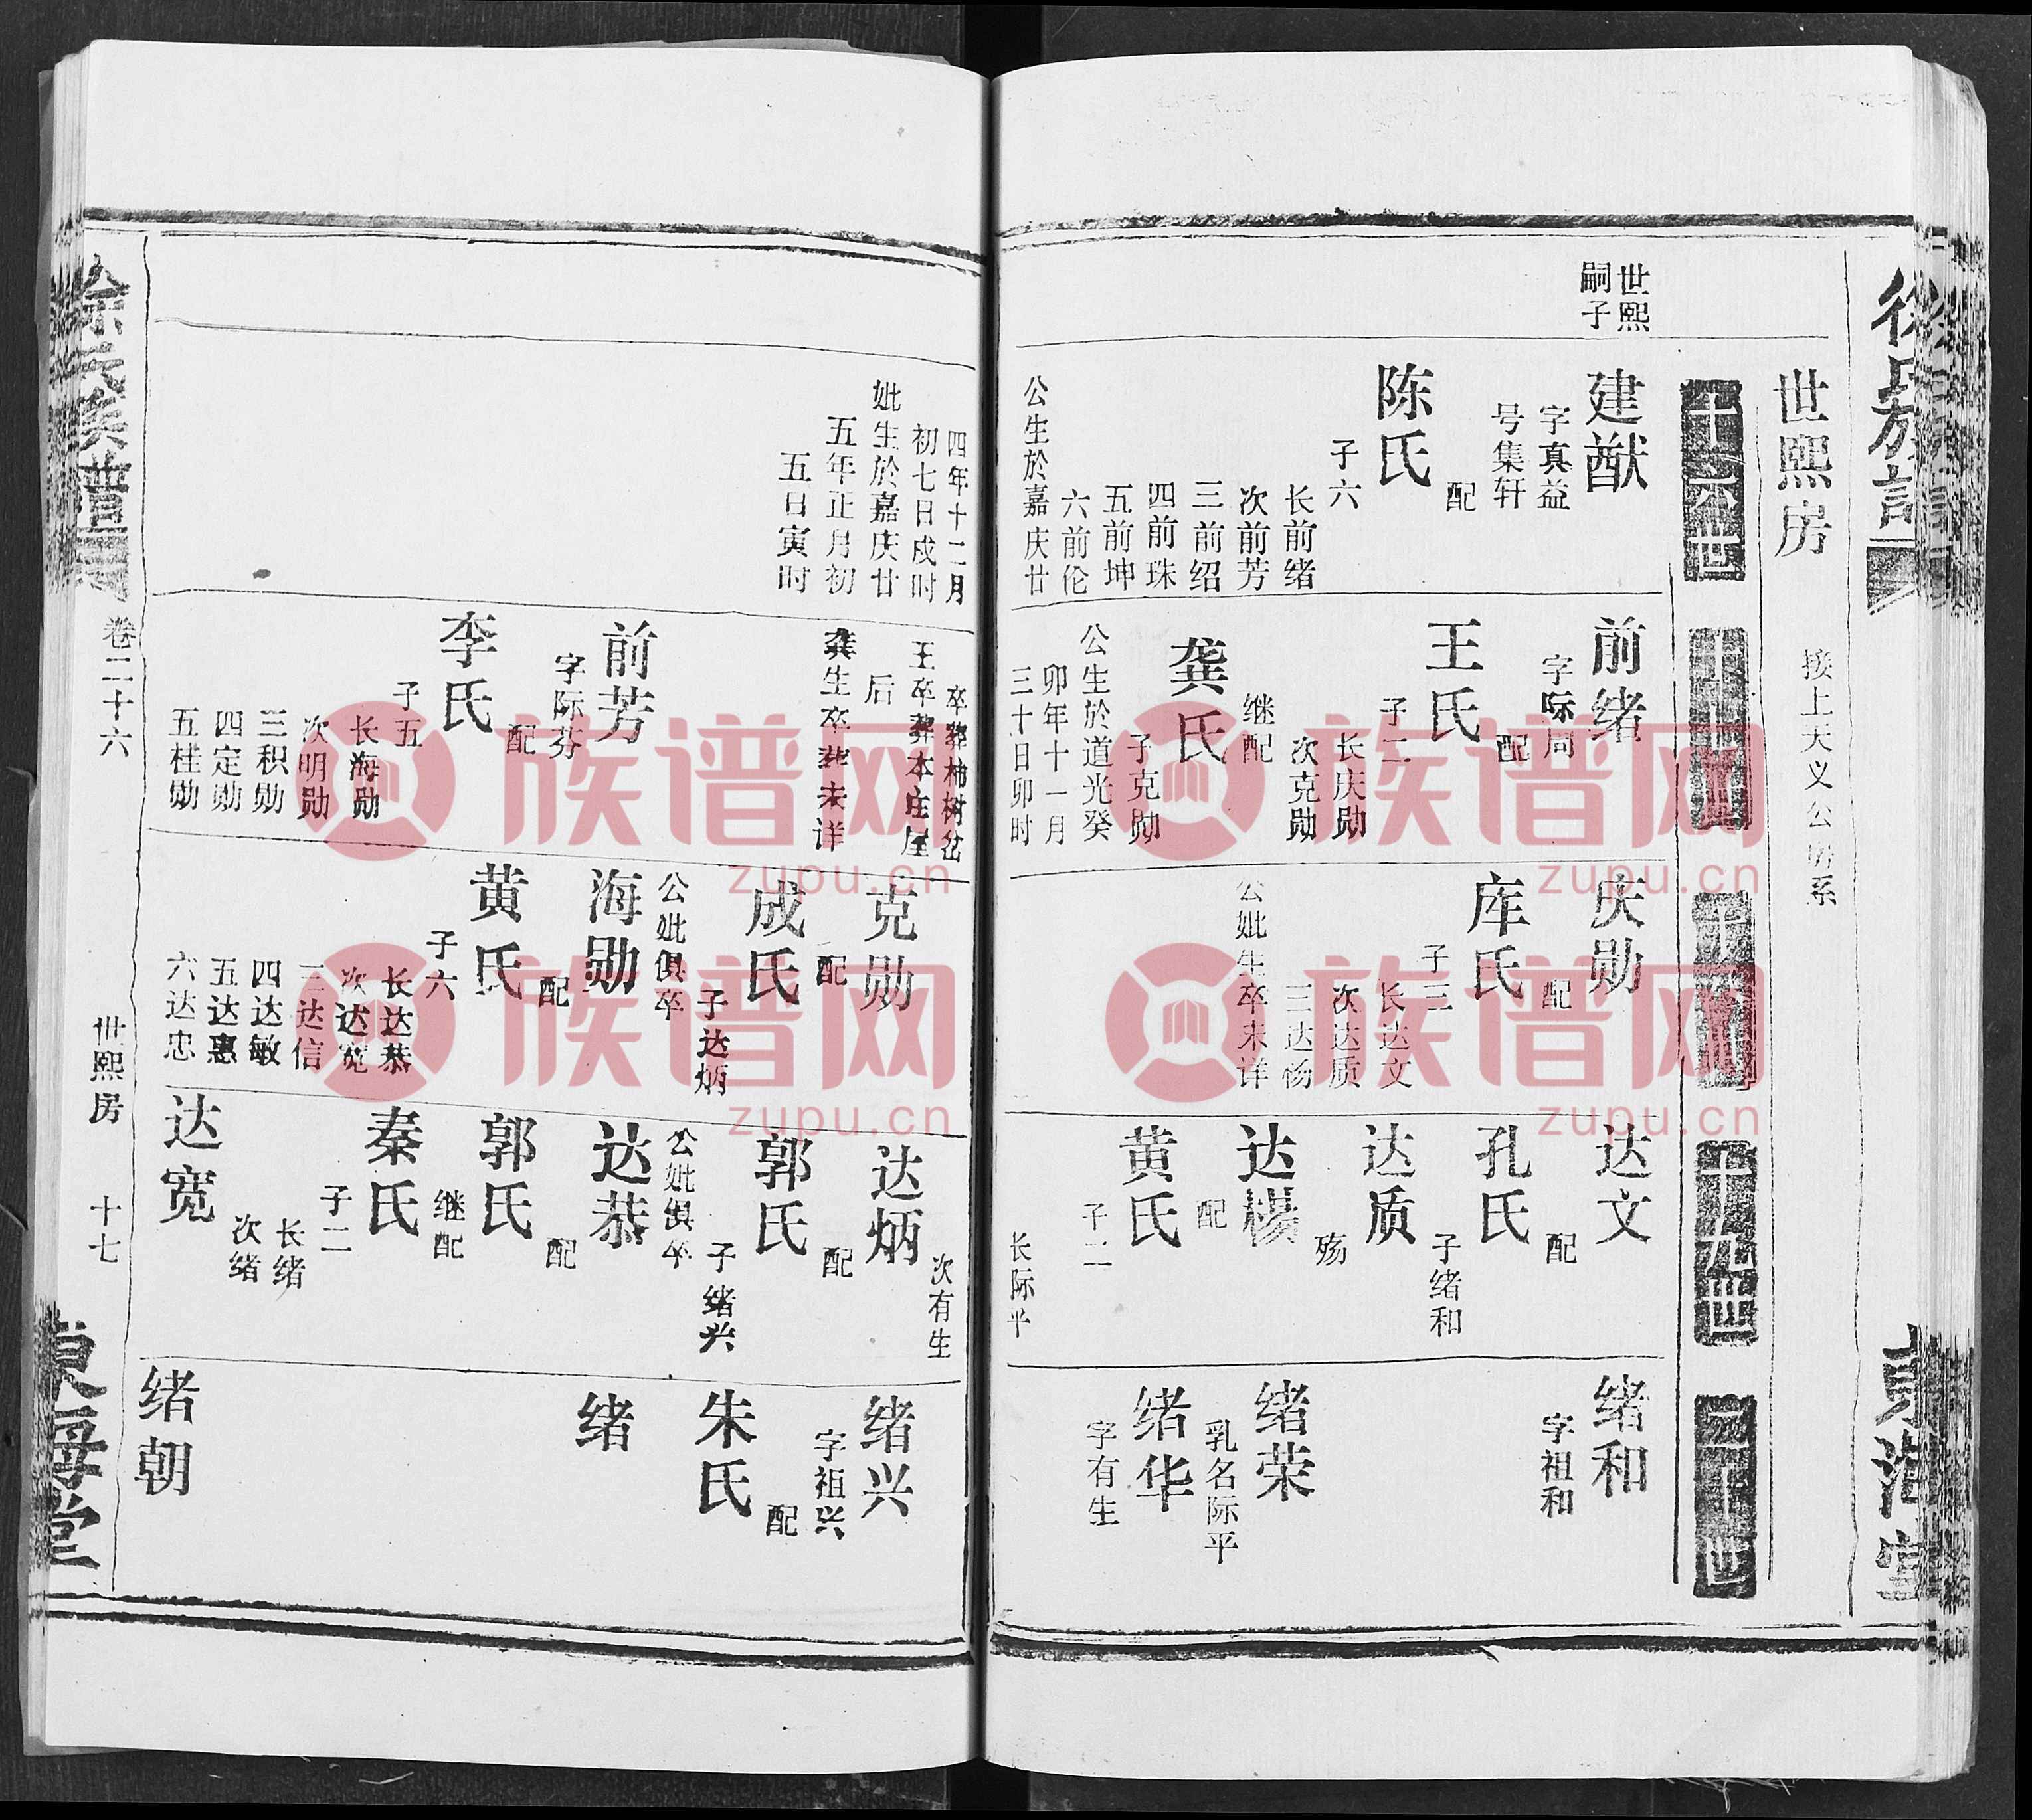 徐氏族譜
東海堂
世熙房
接上天义公房系
十六世
十七世
十八世
十九世
二十世
世熙
嗣子
建猷
字真益
号集轩
配
陈氏
子六
长前绪
次前芳
三前绍
四前珠
五前坤
六前伦
公生於嘉庆廿
前绪
字际同
配
王氏
子二
长庆勋
次克勋
继配
龚氏
子克勋
公生於道光癸
卯年十一月
三十日卯时
庆勋
配
库氏
子三
长达文
次达质
三达杨
公妣生卒未详
达文
配
孔氏
子绪和
达质
殇
达楊
配
黄氏
子二
长际平
绪和
字祖和
绪荣
乳名际平
绪华
字有生
四年十二月
初七日戍时
妣生於嘉庆廿
五年正月初
五日寅时
卒葬柿树岔
王卒葬本庄屋
后
龚生卒葬未详
前芳
字际芬
配
李氏
子五
长海勋
次明勋
三积勋
四定勋
五桂勋
克勋
配
成氏
子达炳
公妣俱卒
海勋
配
黄氏
子六
长达恭
次达宽
三达信
四达敏
五达惠
六达忠
次有生
达炳
配
郭氏
子绪兴
公妣俱卒
达恭
配
郭氏
继配
秦氏
子二
长绪
次绪
达宽
绪兴
字祖兴
配
朱氏
绪
绪朝
徐氏族譜
卷二十六
世熙房
十七
東海堂
族谱网
zupu.cn
族谱网
zupu.cn
族谱网
zupu.cn
族谱网
zupu.cn